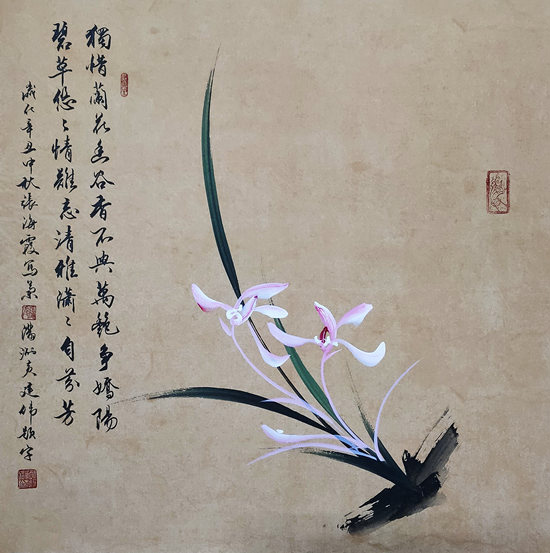 獨惜蘭花幽谷香不與萬艷爭嬌陽
碧草悠々情難忘清雅瀟々自芬芳
歲在辛丑中秋張海霞寫蘭 題字